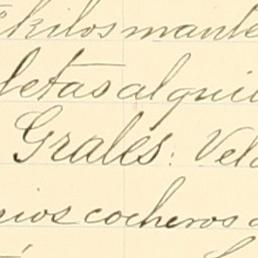 kilos mante
letas alqui
Grales: Vela
cios cocheros